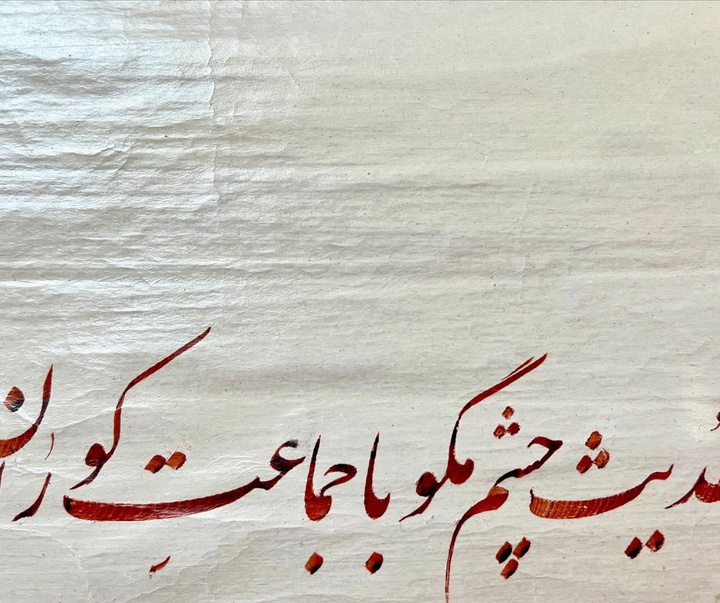 حدیث چشم مگو با جماعتِ کوران